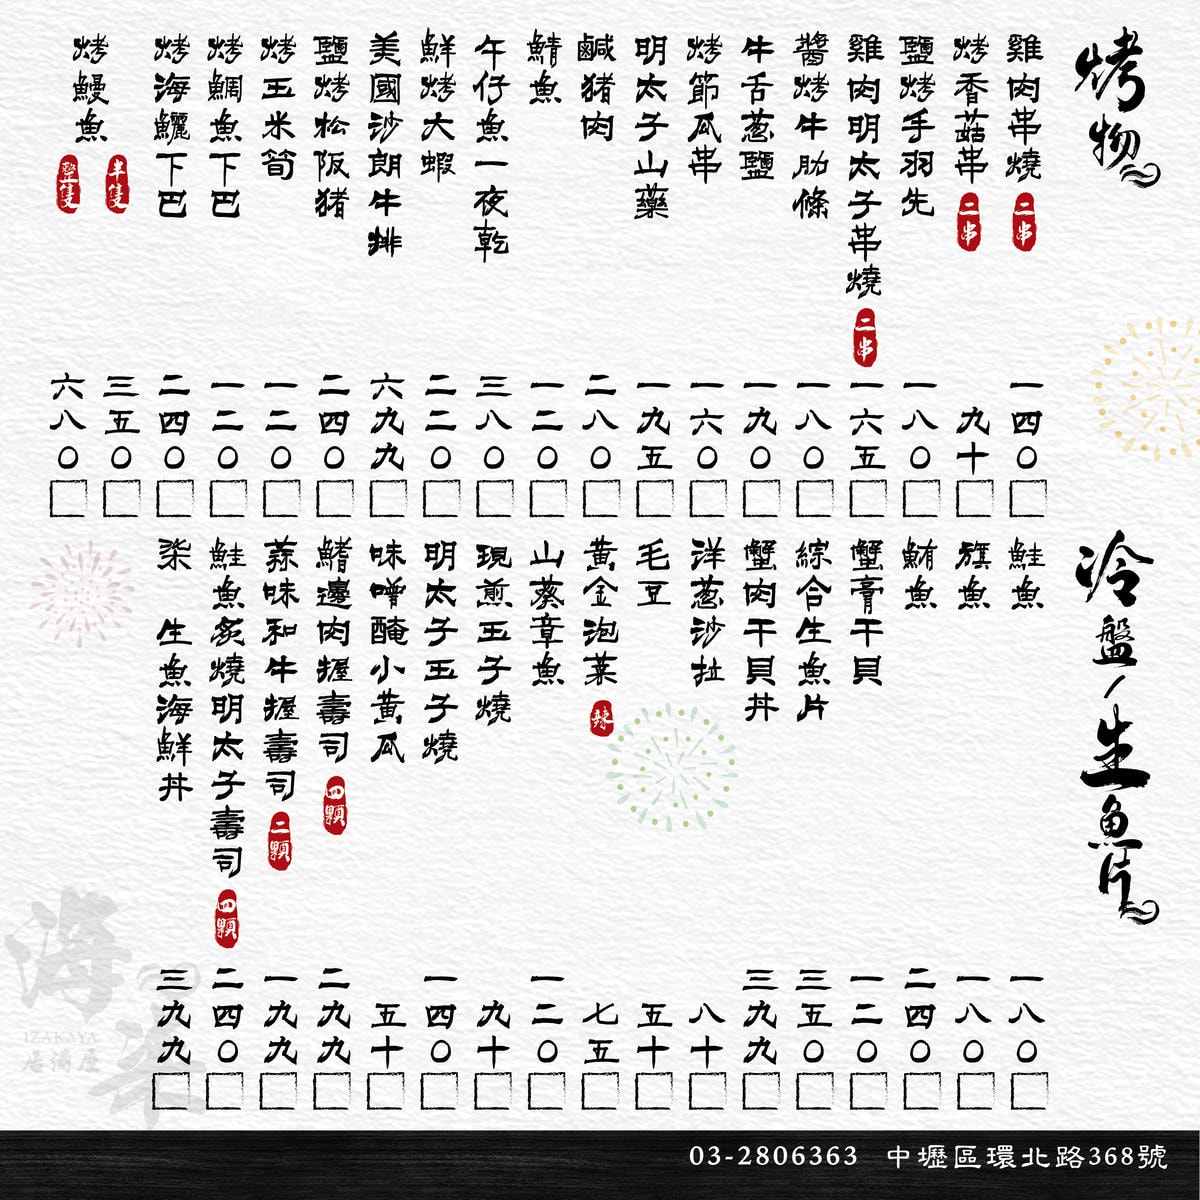 烤物
雞肉串燒 二串 一四〇
烤香菇串 二串 九十
鹽烤手羽先 一八〇
雞肉明太子串燒 二串 一六五
醬烤牛肋條 一八〇
牛舌蔥鹽 一九〇
烤節瓜串 一六〇
明太子山藥 一九五
鹹豬肉 二八〇
鯖魚 一二〇
午仔魚一夜乾 三八〇
鮮烤大蝦 二二〇
美國沙朗牛排 六九九
鹽烤松阪豬 二四〇
烤玉米筍 一二〇
烤鯛魚下巴 一二〇
烤海鱺下巴 二四〇
烤鰻魚 半隻 三五〇
整隻 六八〇
冷盤/生魚片
鮭魚 一八〇
旗魚 一八〇
鮪魚 二四〇
蟹膏干貝 一二〇
綜合生魚片 三五〇
蟹肉干貝丼 三九九
洋蔥沙拉 八十
毛豆 五十
黃金泡菜 辣 七五
山葵章魚 一二〇
現煎玉子燒 九十
明太子玉子燒 一四〇
味噌醃小黃瓜 五十
鰭邊肉握壽司 四顆 二九九
蒜味和牛握壽司 二顆 一九九
鮭魚炙燒明太子壽司 四顆 二四〇
柒 生魚海鮮丼 三九九
海柒
IZAKAYA
居酒屋
03-2806363 中壢區環北路368號